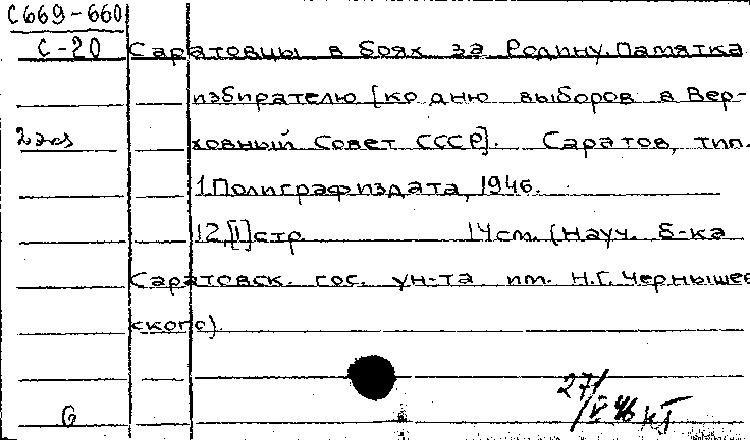 С669-660
С-20
Саратовцы в боях за Родину. Памятка
избирателю [ко дню выборов в Вер-
2 экз
ховный Совет СССР]. Саратов, тип.
1 Полиграфиздата, 1946.
12,[1]стр. 14см. (Науч. Б-ка
Саратовск. гос. ун-та им. Н.Г. Чернышев
ского).
27/V 46
6